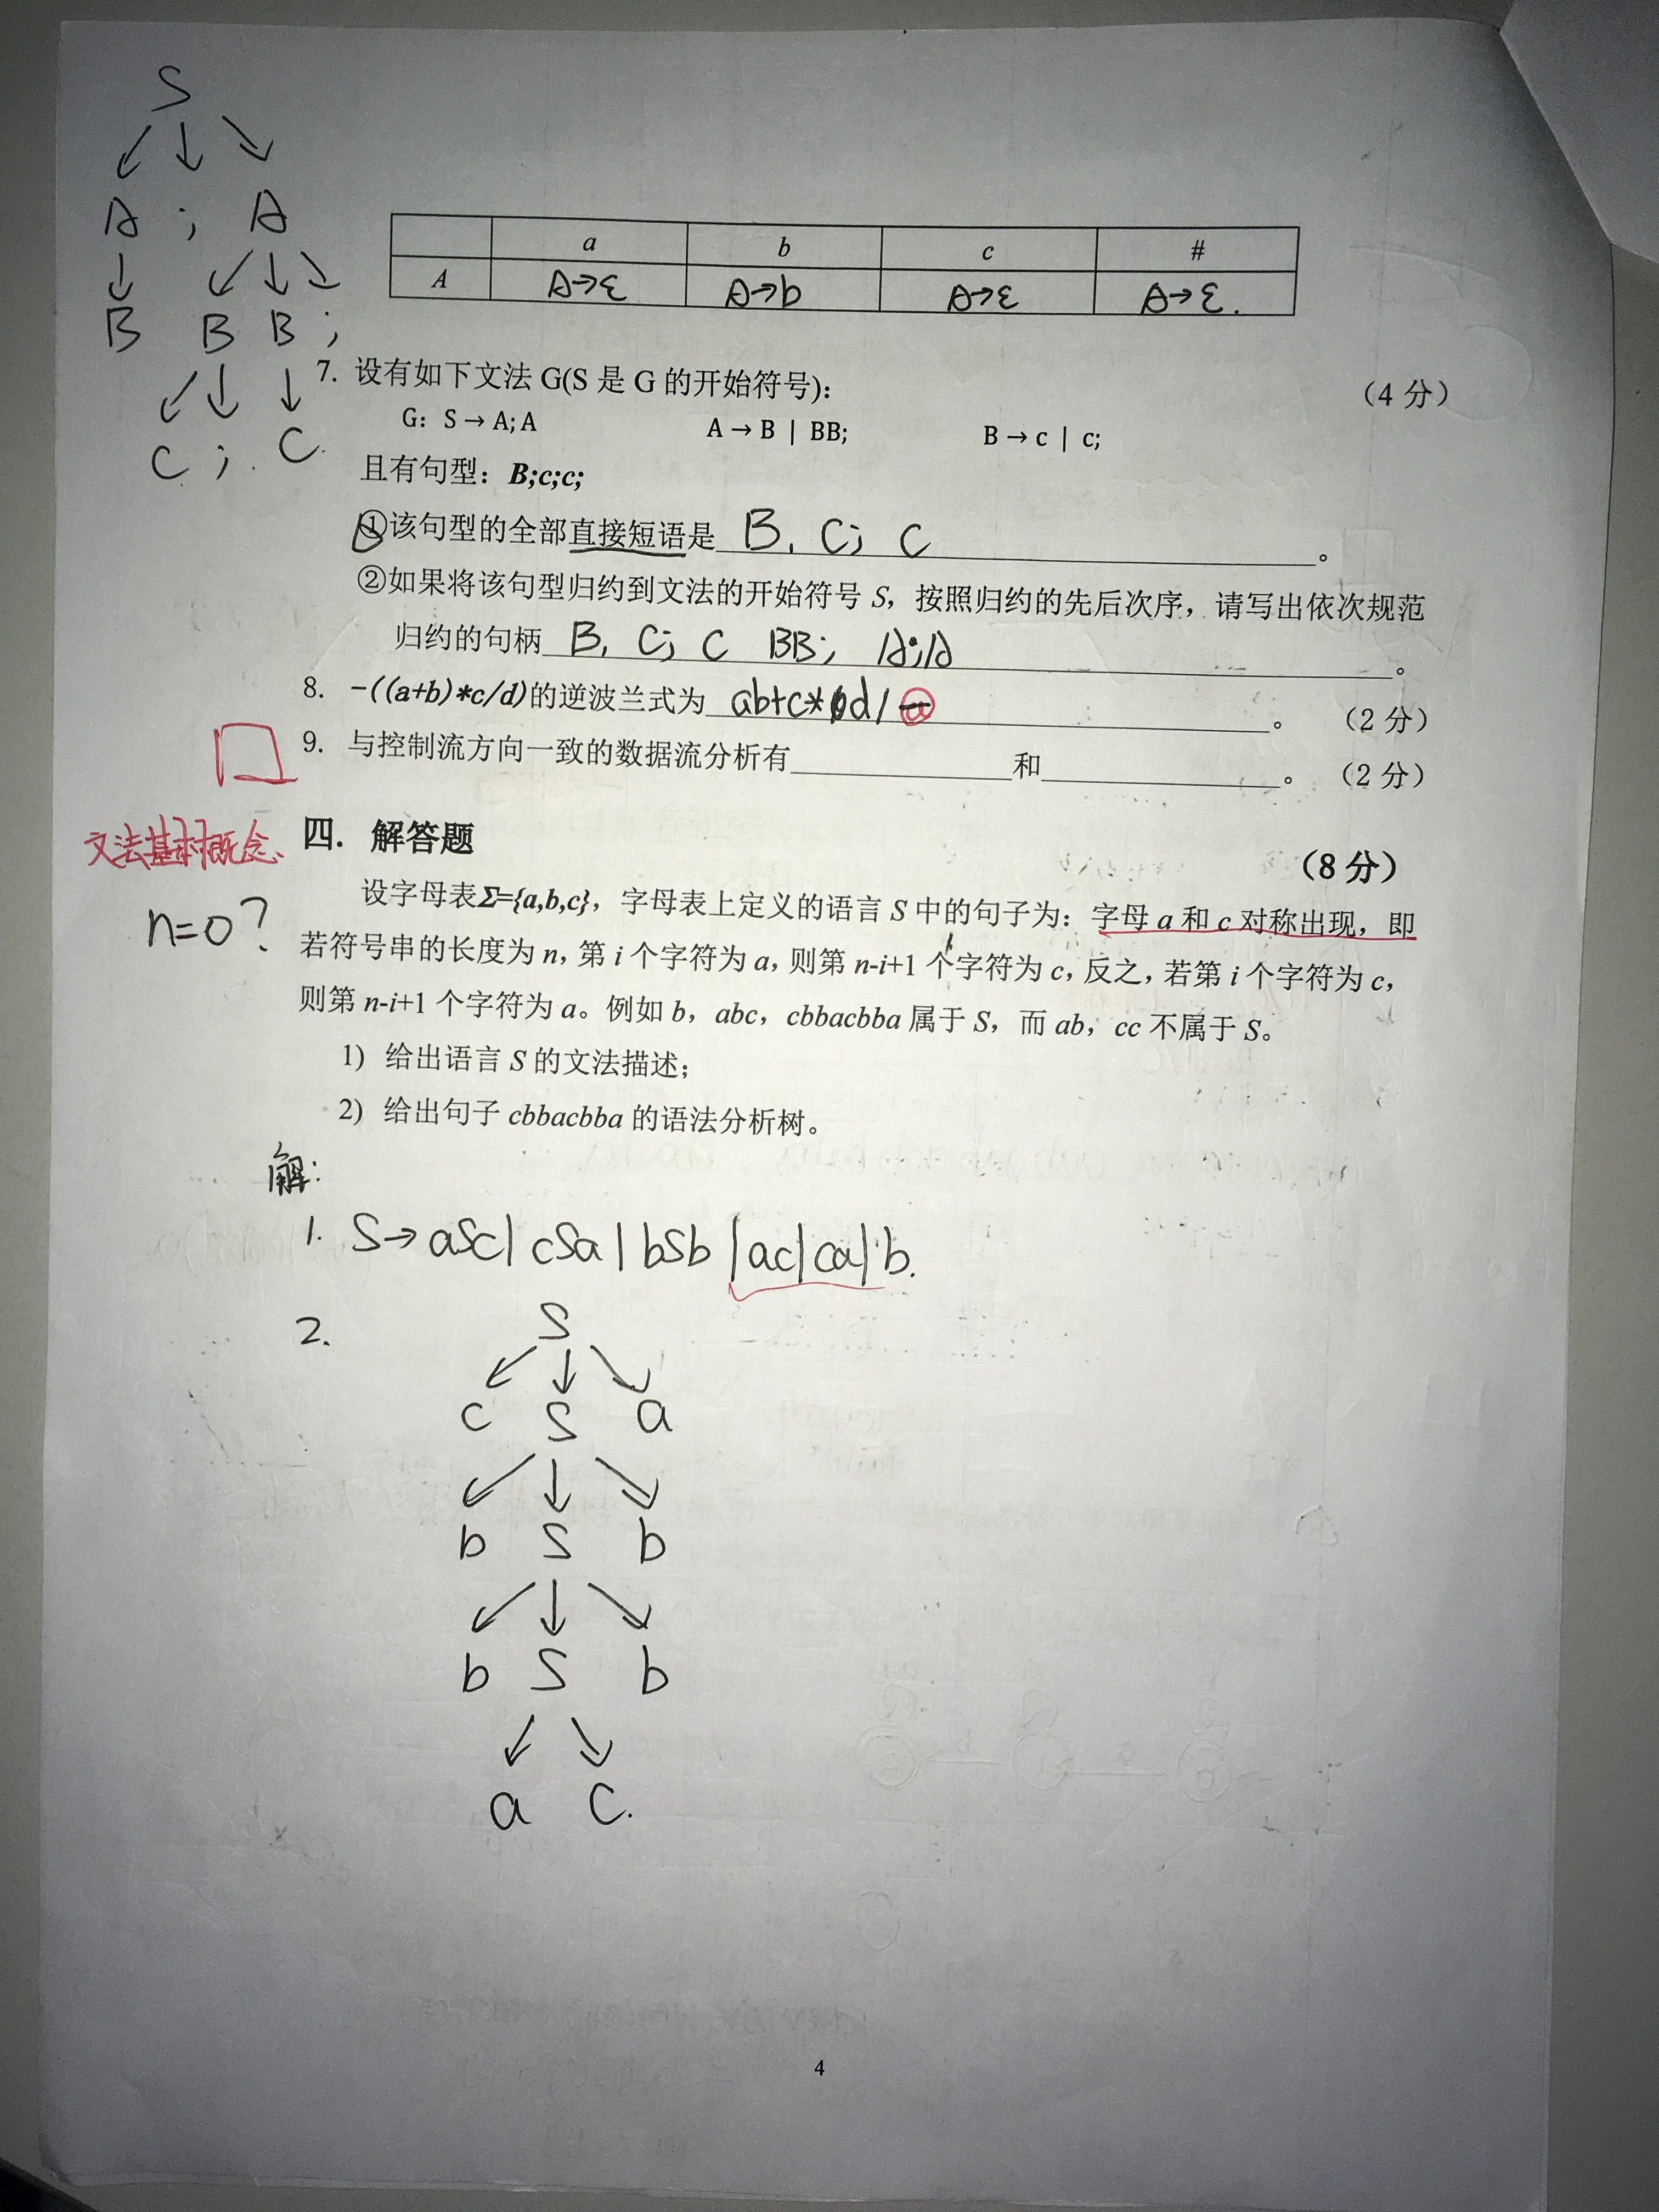 S
A ; A
B B B ;
C ; C
a b c #
A A→ε A→b A→ε A→ε.
7. 设有如下文法 G(S 是 G 的开始符号)： （4 分）
G: S → A; A A → B | BB; B → c | c;
且有句型：B;c;c;
①该句型的全部直接短语是 B, C; C 。
②如果将该句型归约到文法的开始符号 S，按照归约的先后次序，请写出依次规范
归约的句柄 B, C; C BB; A;A 。
8. -((a+b)*c/d)的逆波兰式为 ab+c*d/ @ 。 （2 分）
9. 与控制流方向一致的数据流分析有 和 。 （2 分）
文法基本概念、
四. 解答题 （8 分）
n=0?
设字母表Σ={a,b,c}，字母表上定义的语言 S 中的句子为：字母 a 和 c 对称出现，即
若符号串的长度为 n, 第 i 个字符为 a, 则第 n-i+1 个字符为 c, 反之, 若第 i 个字符为 c,
则第 n-i+1 个字符为 a。例如 b，abc，cbbacbba 属于 S，而 ab，cc 不属于 S。
1) 给出语言 S 的文法描述；
2) 给出句子 cbbacbba 的语法分析树。
解:
1. S→aSc| cSa | bSb |ac|ca|b.
2. S
c S a
b S b
b S b
a C.
4